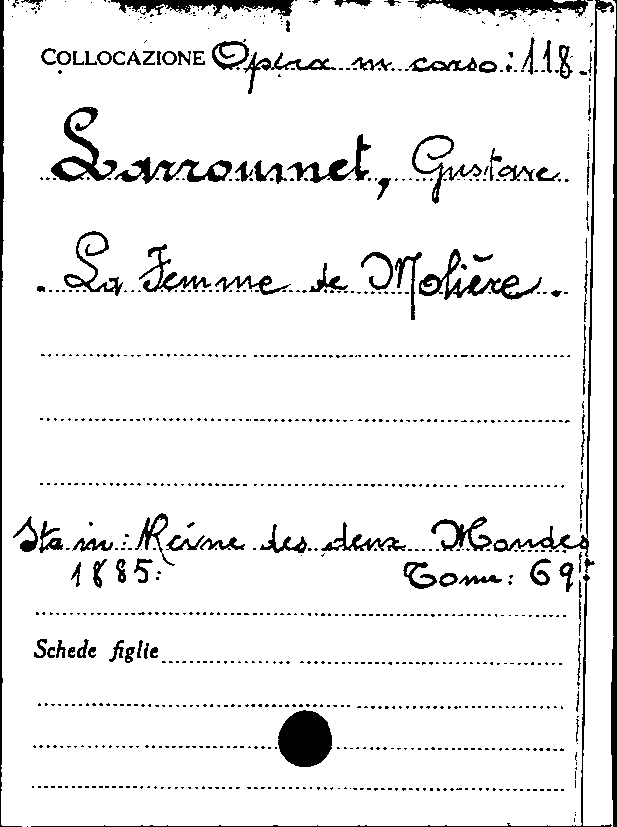 COLLOCAZIONE Opera in corso: 118.
Larroumet, Gustave
La Femme de Molière.
Sta in: Revue des deux Mondes
1885: Tome: 69:
Schede figlie